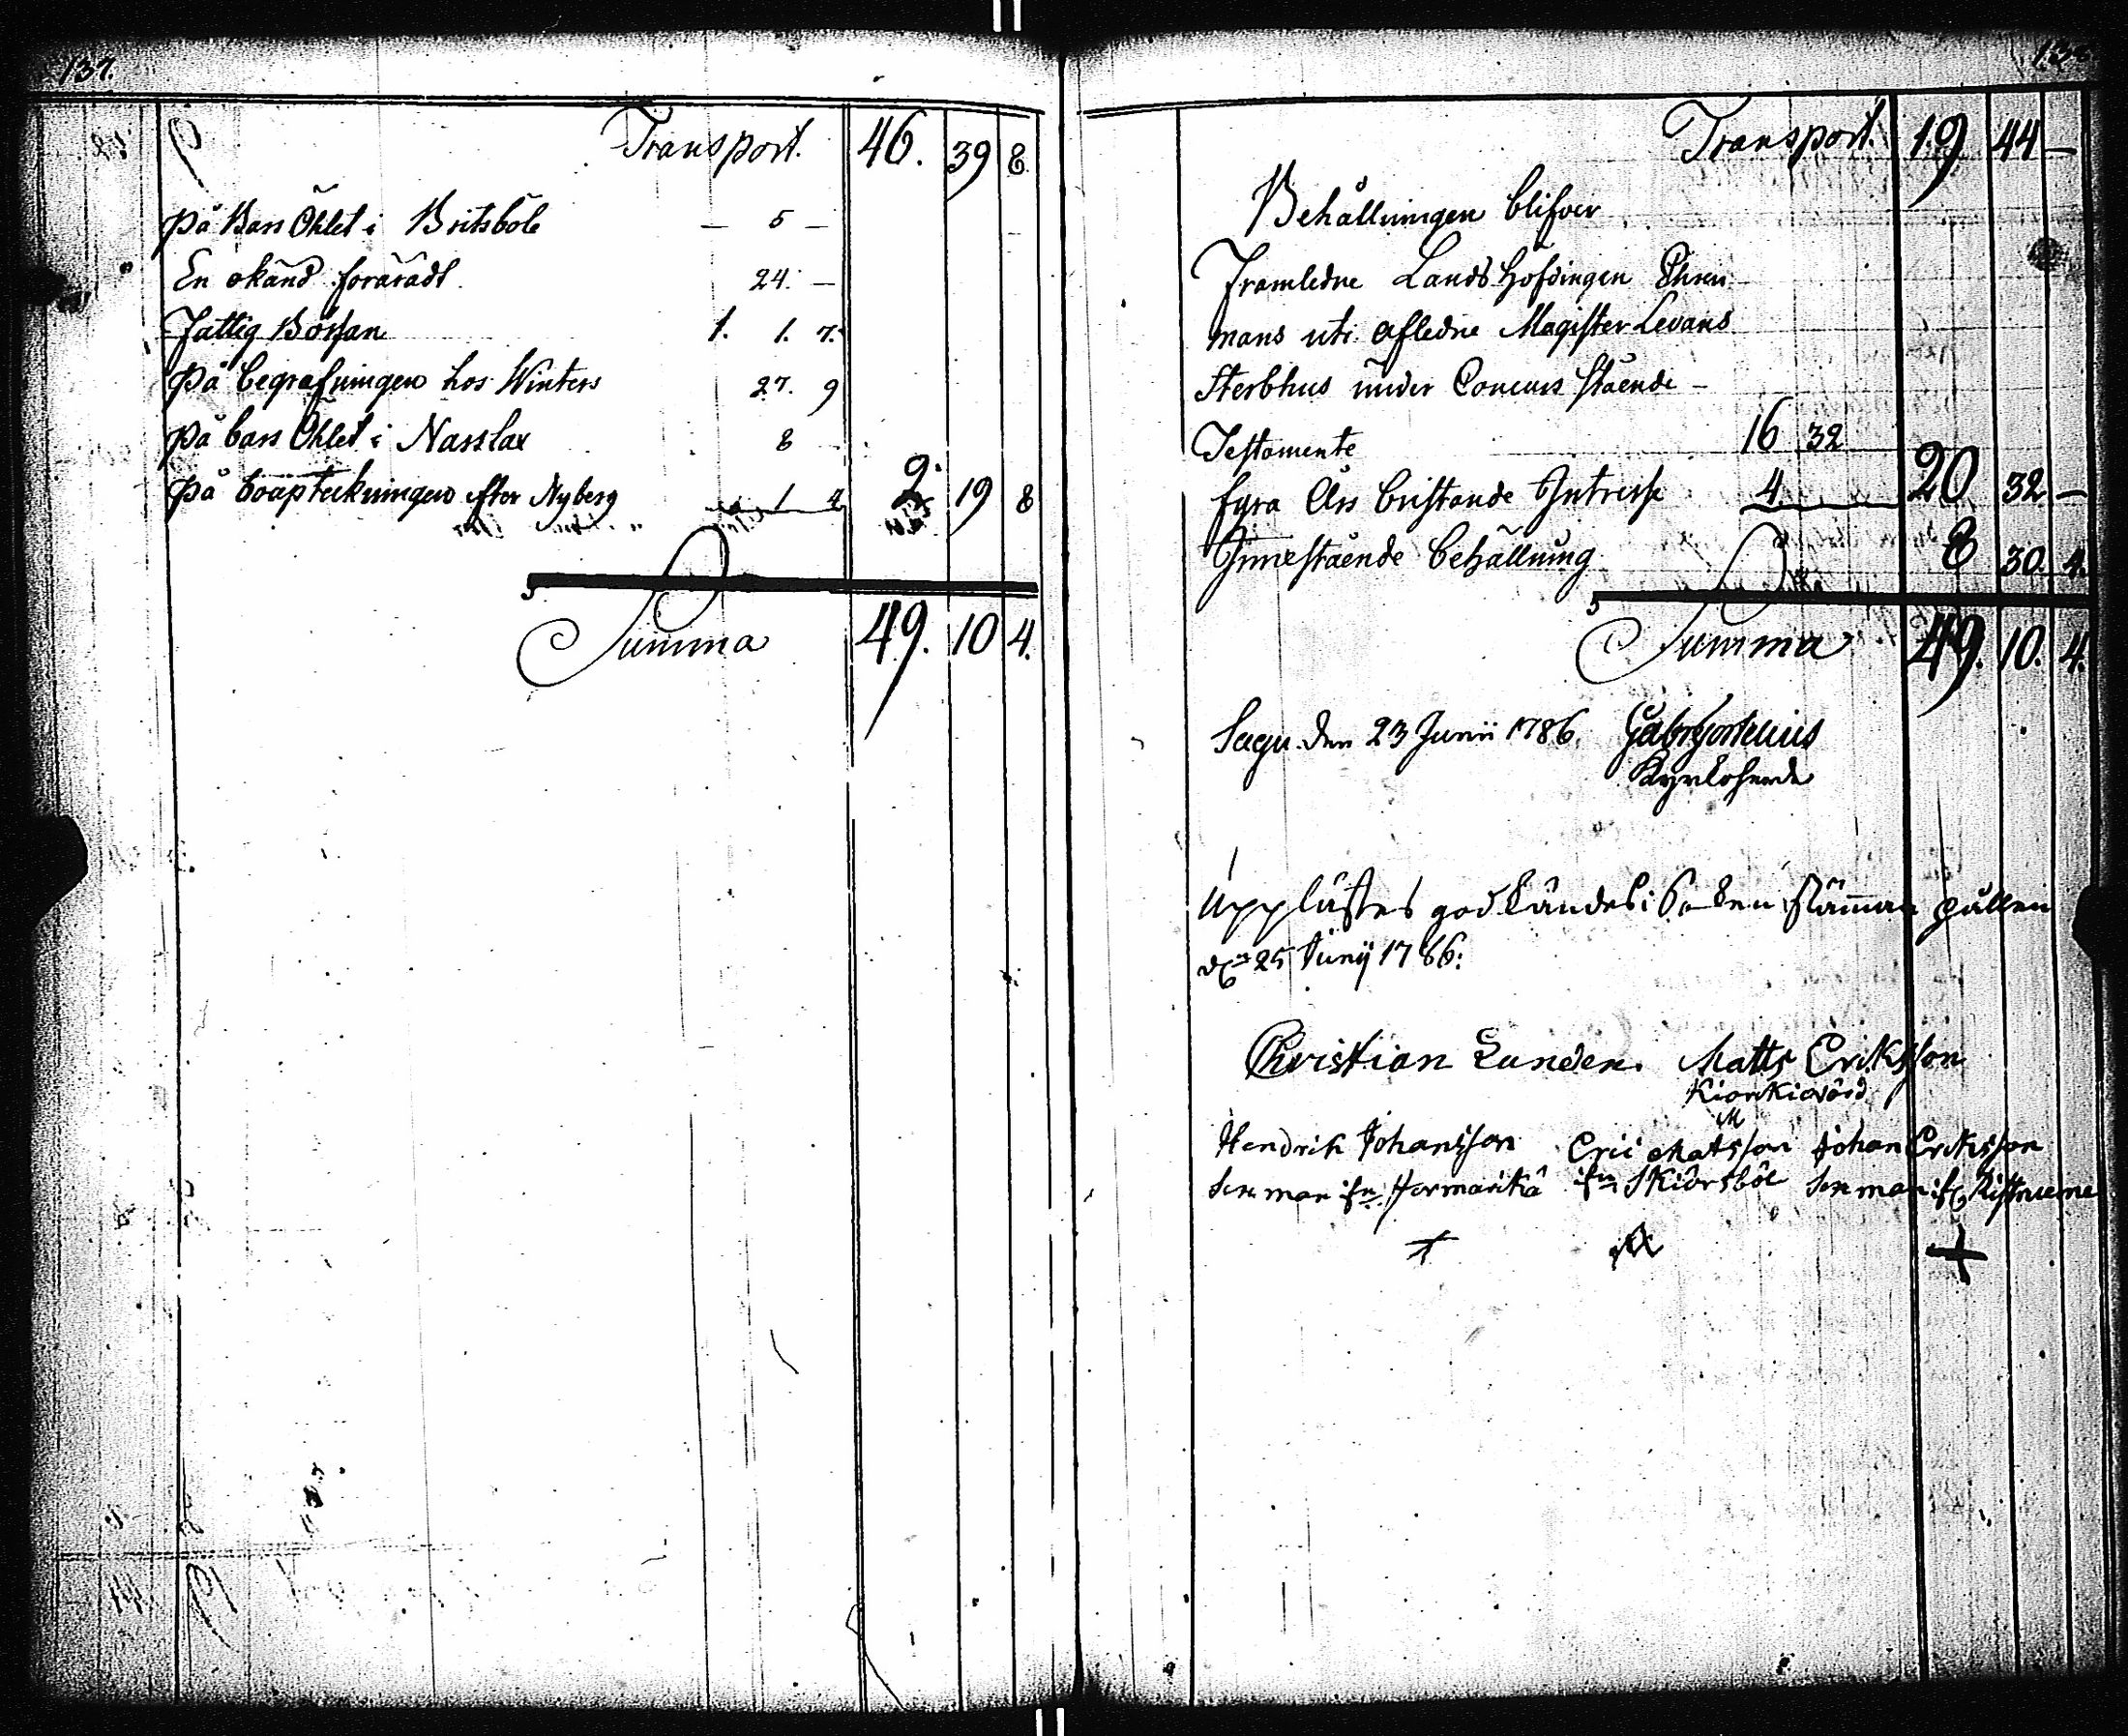 137.
Transport. 46. 39 8
På Bars Öhlet i Britsböle — 5 —
En okänd förärädt 24. —
Fattig Bössan 1. 1. 7.
På begrafningen hos Winters 27. 9
På bars Öhlet i Nasslax 8 —
På boupteckningen efter Nyberg 1 4 2. 19 8
Summa 49. 10 4.
Transport. 19 44 —
Behållningen blifver
Framledne Landshöfdingen Ehren
mans uti afledne Magister Levans
Sterbhus under Concurs stående —
Testamente 16 32
fyra Års bristande Intresse 4 20 32 —
Innestående behållning 8 30 4.
Summa 49. 10. 4.
Sagu den 23 Junii 1786.
Kyrkoherde
Upplästes godkändes i Soken stämman
d. 25 Junij 1786:
Christian Lunden. Matts Eriksson
Hendrik Johansson Eric Matsson Johan Eriksson
Sexman ifn Skiörsböle Sexman